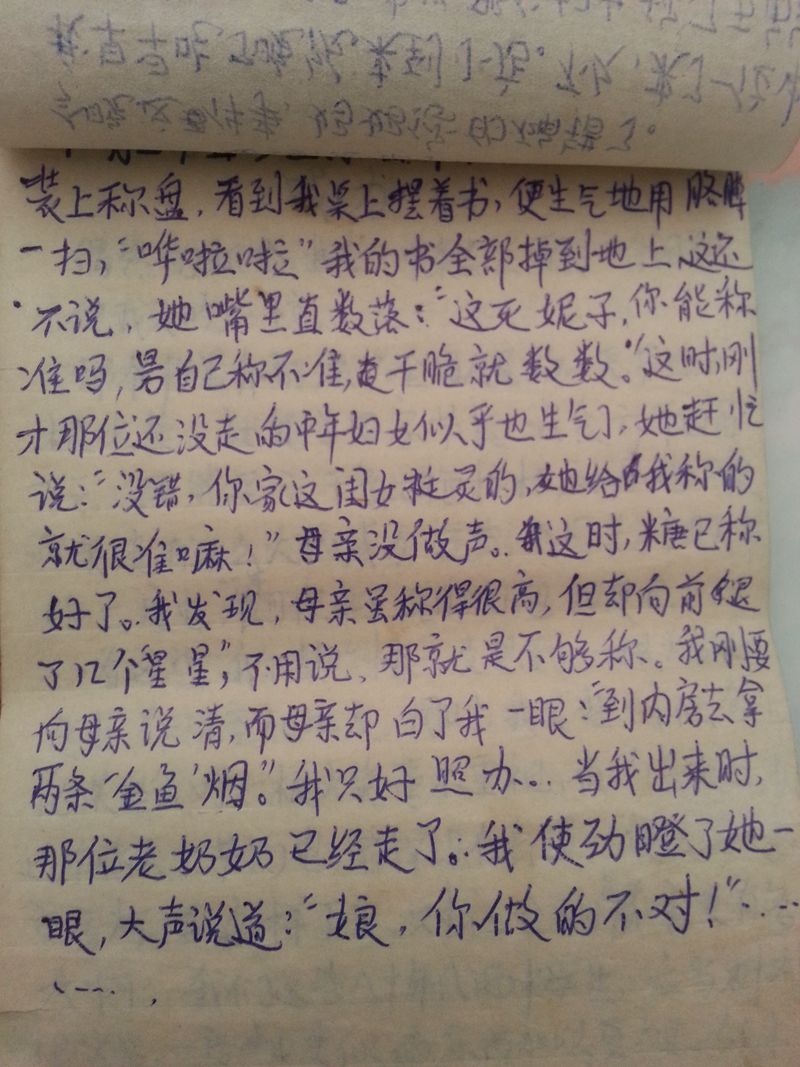 装上称盘，看到我桌上摆着书，便生气地用胳膊
一扫，“哗啦啦”我的书全部掉到地上，这还
不说，她嘴里直数落：“这死妮子，你能称
准吗，自己称不准，干脆就数数。”这时，刚
才那位还没走的中年妇女似乎也生气了，她赶忙
说：“没错，你家这闺女挺灵的，她给我称的
就很准嘛！”母亲没做声。这时，糖已称
好了。我发现，母亲虽称得很高，但却向前退
了几个“星星”，不用说，那就是不够称。我刚要
向母亲说清，而母亲却白了我一眼：“到内房去拿
两条“金鱼”烟。”我只好照办。当我出来时，
那位老奶奶已经走了。我使劲瞪了她一
眼，大声说道：“娘，你做的不对！”……
……